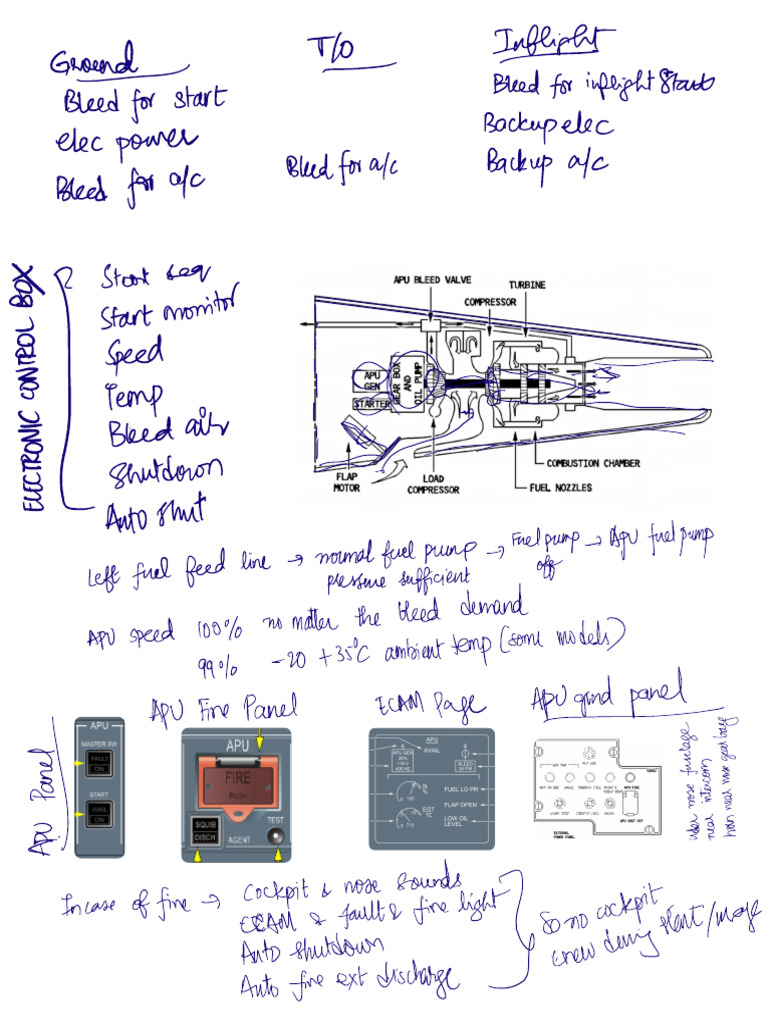 Ground
T/O
Inflight
Bleed for start
elec power
Bleed for a/c
Bleed for a/c
Bleed for inflight start
Backup elec
Backup a/c
ELECTRONIC CONTROL BOX
Start seq
Start monitor
Speed
Temp
Bleed air
Shutdown
Auto shut
APU BLEED VALVE
TURBINE
COMPRESSOR
APU GEN
STARTER
GEAR BOX AND OIL PUMP
FLAP MOTOR
LOAD COMPRESSOR
COMBUSTION CHAMBER
FUEL NOZZLES
Left fuel feed line → normal fuel pump pressure sufficient → Fuel pump off → APU fuel pump
APU speed 100% no matter the bleed demand
99% -20 +35°C ambient temp (some models)
APU Panel
APU
MASTER SW
FAULT
ON
START
AVAIL
ON
APU Fire Panel
APU
FIRE
PUSH
SQUIB
DISCH
AGENT
TEST
ECAM Page
APU
AVAIL
APU GEN
BLEED
N
%
FUEL LO PR
FLAP OPEN
EGT
°C
LOW OIL
LEVEL
APU grnd panel
APU FIRE
APU SHUT OFF
EXTERNAL
POWER PANEL
under nose fuselage
near intercom
horn near nose gear bay
In case of fire →
Cockpit & nose sounds
ECAM & fault & fire light
Auto shutdown
Auto fire ext discharge
So no cockpit
crew during